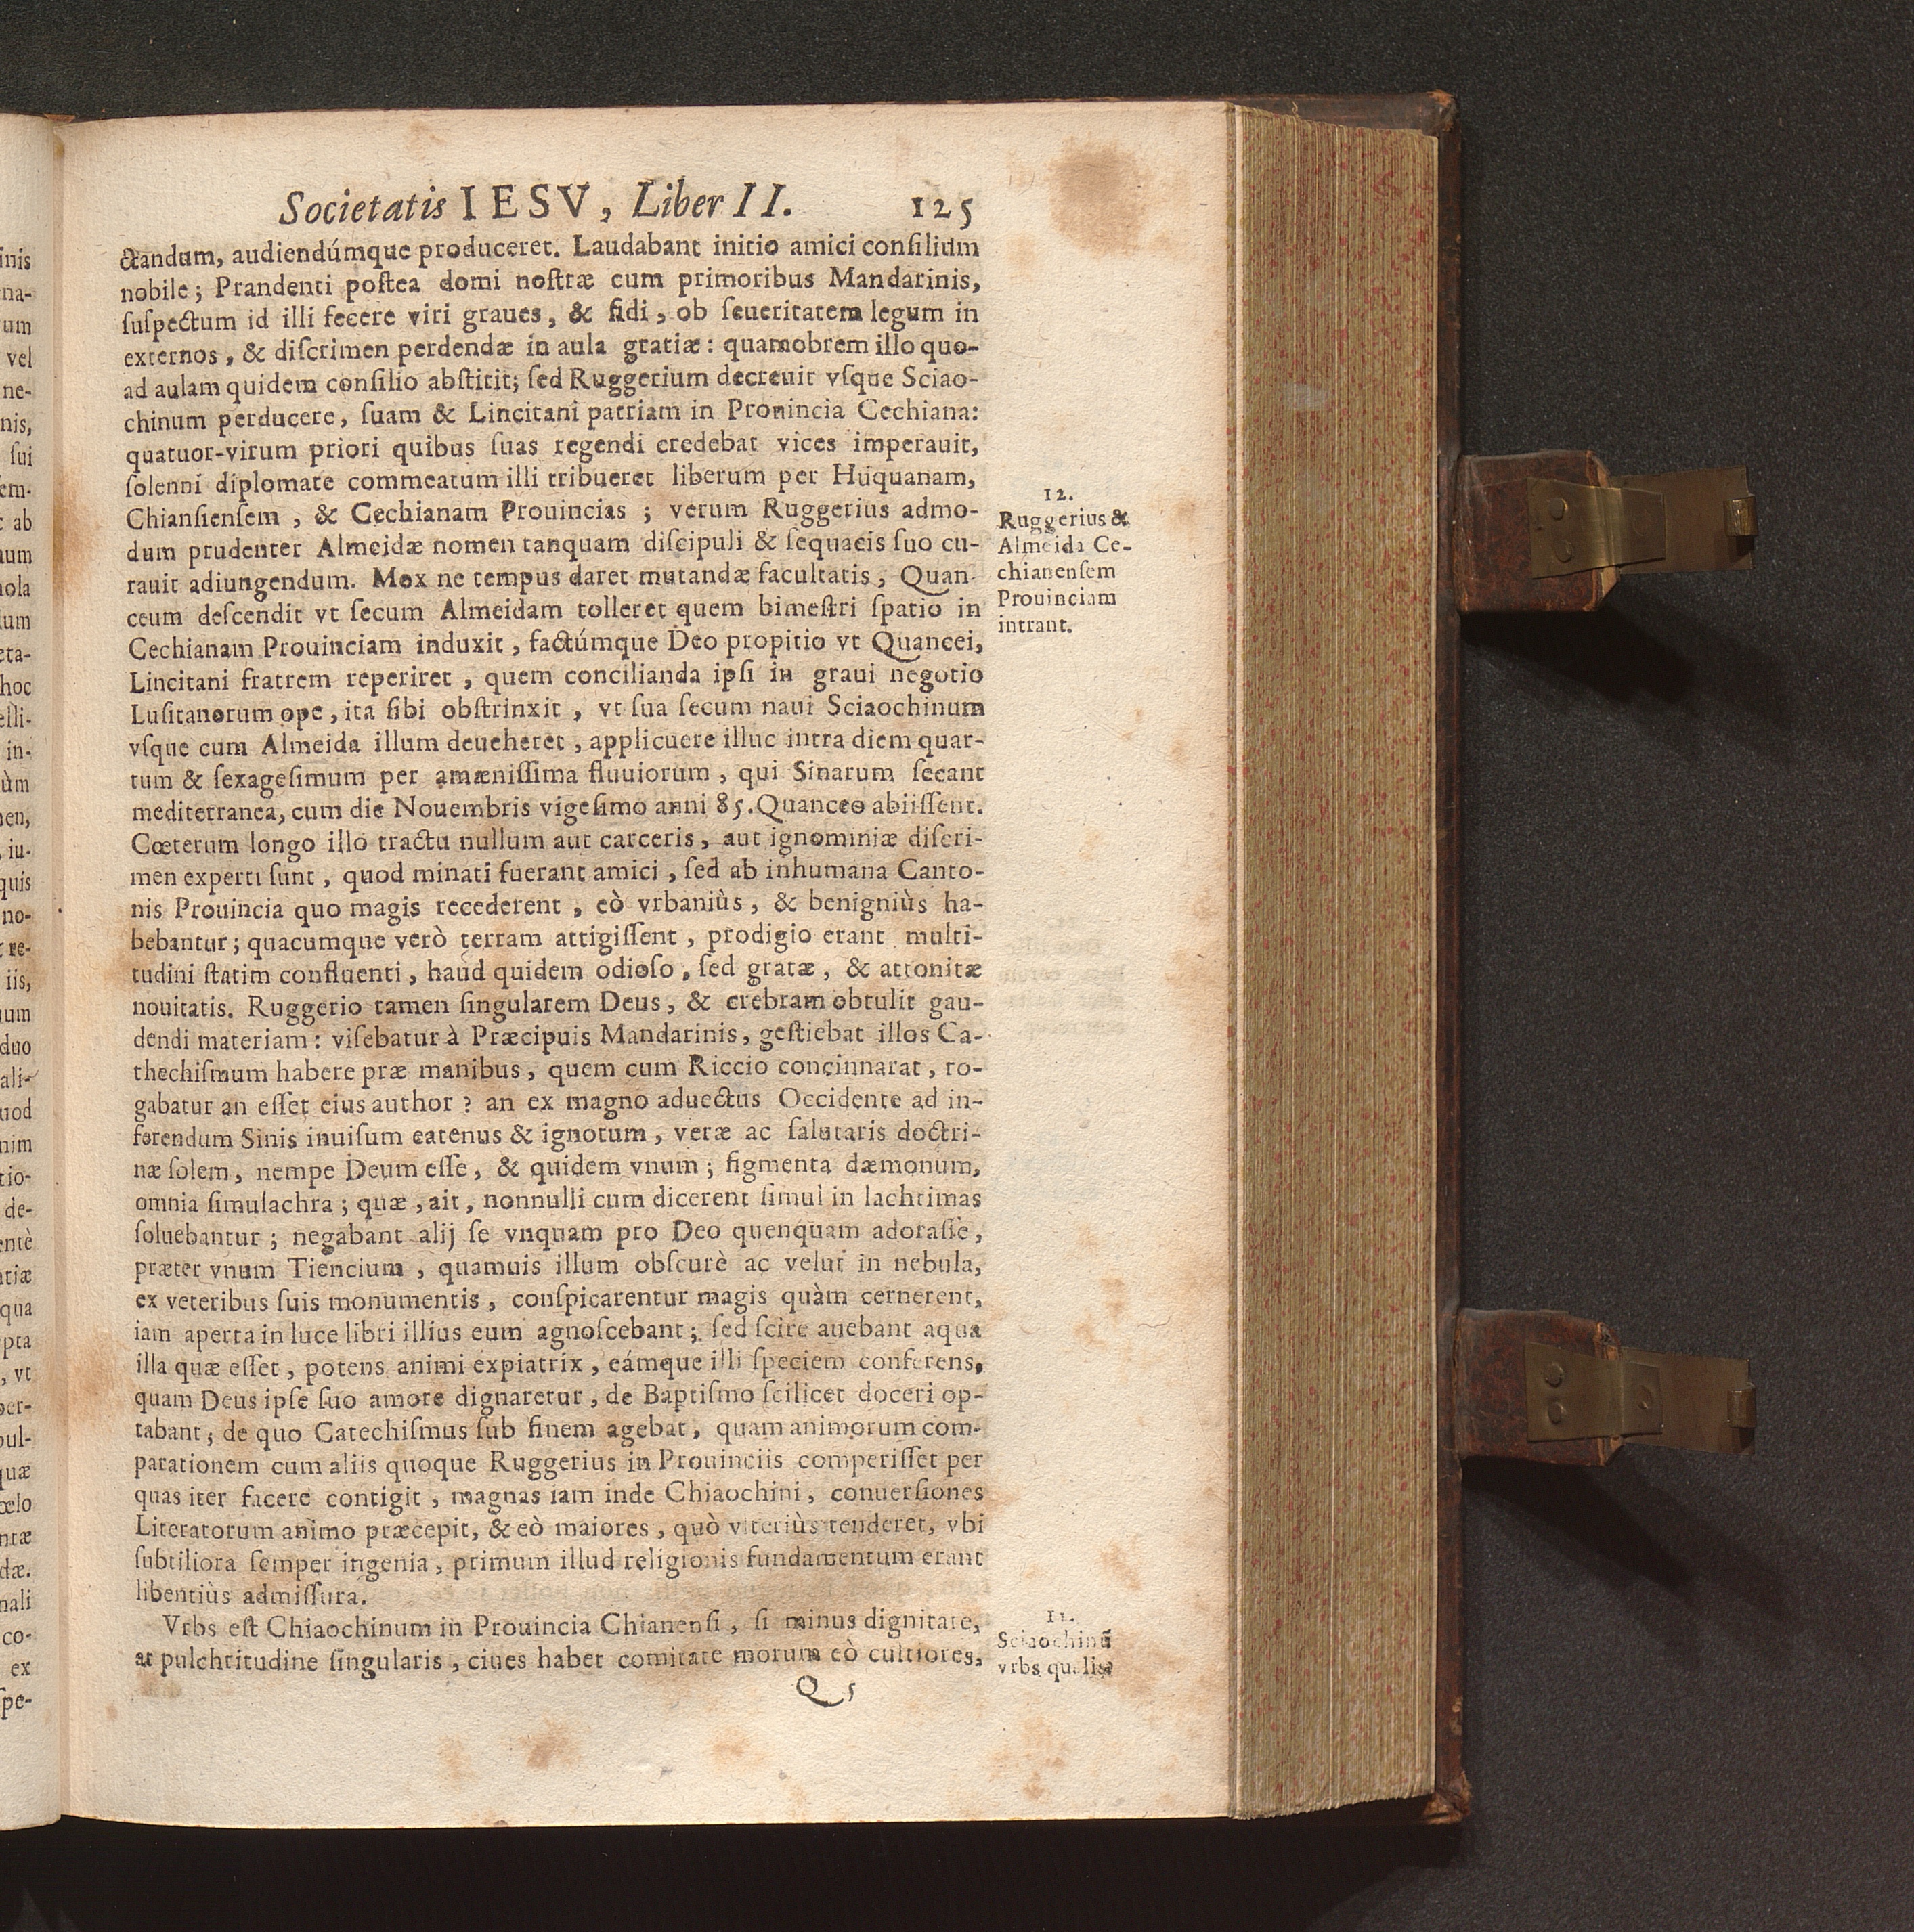 Societatis IESV, Liber II. 125
ctandum, audiendúmque produceret. Laudabant initio amici consilium
nobile; Prandenti postea domi nostræ cum primoribus Mandarinis,
suspectum id illi fecere viri graues, & fidi, ob seueritatem legum in
externos, & discrimen perdendæ in aula gratiæ: quamobrem illo quo-
ad aulam quidem consilio abstitit; sed Ruggerium decreuit vsque Sciao-
chinum perducere, suam & Lincitani patriam in Prouincia Cechiana:
quatuor-virum priori quibus suas regendi credebat vices imperauit,
solenni diplomate commeatum illi tribueret liberum per Huquanam,
Chiansiensem, & Cechianam Prouincias; verum Ruggerius admo-
dum prudenter Almeidæ nomen tanquam discipuli & sequacis suo cu-
rauit adiungendum. Mox ne tempus daret mutandæ facultatis, Quan-
ceum descendit vt secum Almeidam tolleret quem bimestri spatio in
Cechianam Prouinciam induxit, factúmque Deo propitio vt Quancei,
Lincitani fratrem reperiret, quem concilianda ipsi in graui negotio
Lusitanorum ope, ita sibi obstrinxit, vt sua secum naui Sciaochinum
vsque cum Almeida illum deueheret, applicuere illuc intra diem quar-
tum & sexagesimum per amænissima fluuiorum, qui Sinarum secant
mediterranea, cum die Nouembris vigesimo anni 85. Quanceo abiissent.
Cœterum longo illo tractu nullum aut carceris, aut ignominiæ discri-
men experti sunt, quod minati fuerant amici, sed ab inhumana Canto-
nis Prouincia quo magis recederent, eò vrbaniùs, & benigniùs ha-
bebantur; quacumque verò terram attigissent, prodigio erant multi-
tudini statim confluenti, haud quidem odioso, sed gratæ, & attonitæ
nouitatis. Ruggerio tamen singularem Deus, & crebram obtulit gau-
dendi materiam: visebatur à Præcipuis Mandarinis, gestiebat illos Ca-
thechismum habere præ manibus, quem cum Riccio concinnarat, ro-
gabatur an esset eius author? an ex magno aduectus Occidente ad in-
ferendum Sinis inuisum eatenus & ignotum, veræ ac salutaris doctri-
næ solem, nempe Deum esse, & quidem vnum; figmenta dæmonum,
omnia simulachra; quæ, ait, nonnulli cum dicerent simul in lachrimas
soluebantur; negabant alij se vnquam pro Deo quenquam adorasse,
præter vnum Tiencium, quamuis illum obscurè ac velut in nebula,
ex veteribus suis monumentis, conspicarentur magis quàm cernerent,
iam aperta in luce libri illius eum agnoscebant; sed scire auebant aqua
illa quæ esset, potens animi expiatrix, eámque illi speciem conferens,
quam Deus ipse suo amore dignaretur, de Baptismo scilicet doceri op-
tabant; de quo Catechismus sub finem agebat, quam animorum com-
parationem cum aliis quoque Ruggerius in Prouinciis comperisset per
quas iter facere contigit, magnas iam inde Chiaochini, conuersiones
Literatorum animo præcepit, & eò maiores, quò vlteriùs tenderet, vbi
subtiliora semper ingenia, primum illud religionis fundamentum erant
libentiùs admissura.
Vrbs est Chiaochinum in Prouincia Chianensi, si minus dignitate,
at pulchritudine singularis, ciues habet comitate morum eò cultiores,
Q 5
12.
Ruggerius &
Almeida Ce-
chianensem
Prouinciam
intrant.
11.
Sciaochinũ
vrbs qualis
inis
na-
um
vel
ne-
nis,
sui
em-
ab
um
nola
um
eta-
hoc
elli-
in-
ùm
nen,
iu-
quis
no-
re-
iis,
uum
duo
ali-
uod
nim
tio-
de-
entè
ntiæ
qua
pta
, vt
per-
pul-
quæ
œlo
ntæ
dæ.
nali
co-
ex
spe-